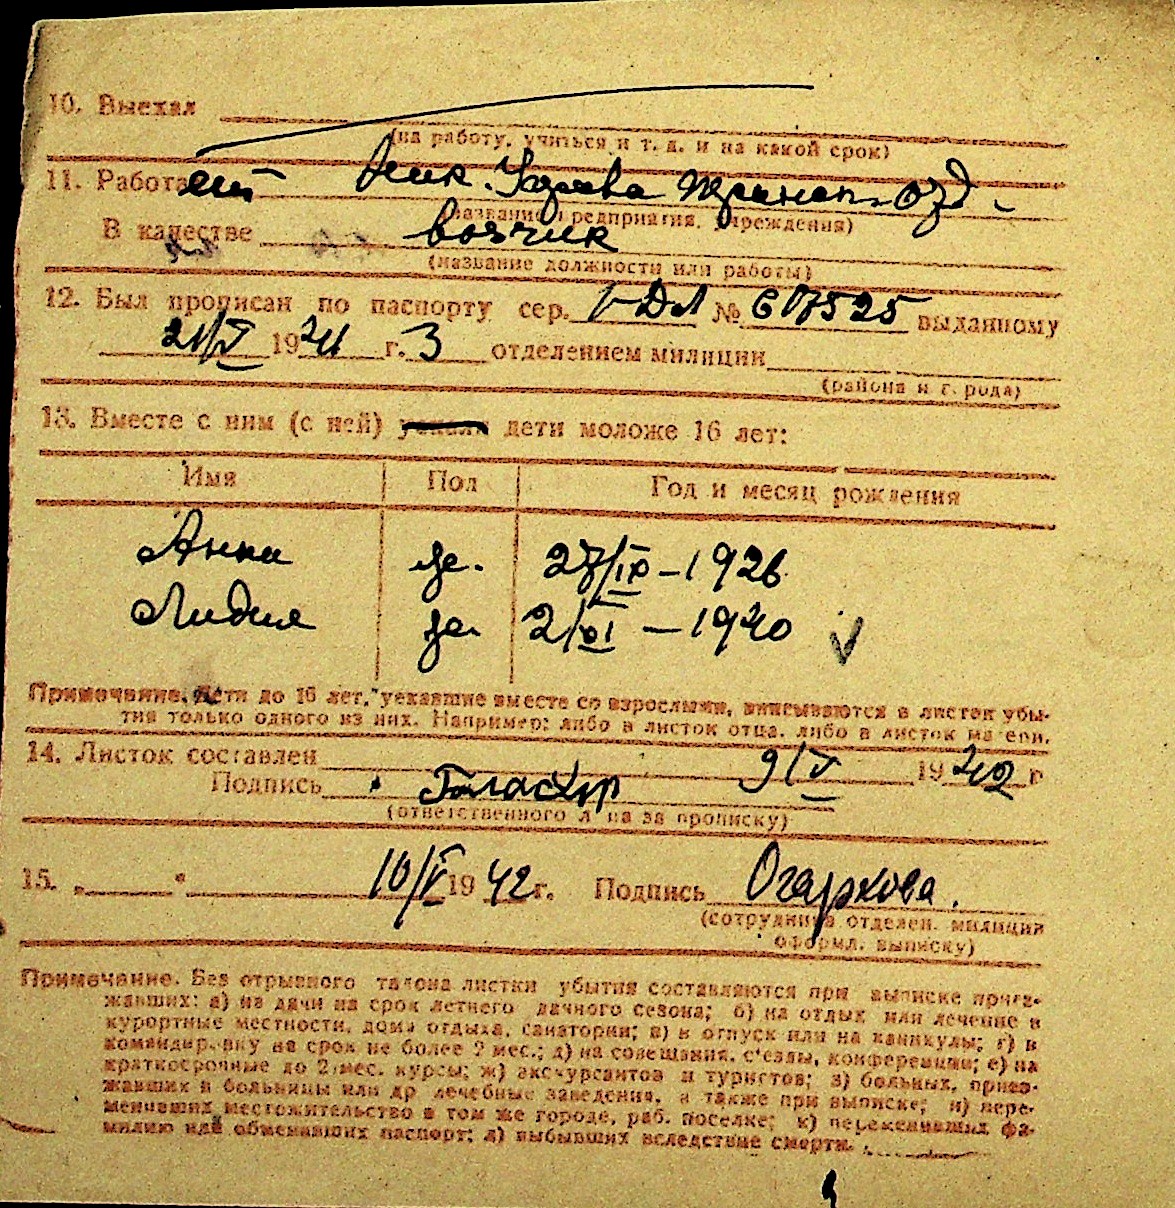 10. Выехал
(на работу, учиться и т. д. и на какой срок)
11. Работает
(название предприятия, учреждения)
В качестве возчик
(название должности или работы)
12. Был прописан по паспорту сер. № выданному
21/V 1941 г. 3 отделением милиции
(района и города)
13. Вместе с ним (с ней) уехали дети моложе 16 лет:
Имя Пол Год и месяц рождения
Анна ж. 27/IX – 1926
Лидия ж. 2/XI – 1940
Примечание. Дети до 16 лет, уехавшие вместе со взрослыми, вписываются в листок убы-
тия только одного из них. Например: либо в листок отца, либо в листок матери.
14. Листок составлен 9/V 1942 г
Подпись
(ответственного лица за прописку)
15. „ “ 10/V 1942 г. Подпись Огаркова.
(сотрудника отделен. милиции
оформл. выписку)
Примечание. Без отрывного талона листки убытия составляются при выписке приез-
жавших: а) на дачи на срок летнего дачного сезона; б) на отдых или лечение в
курортные местности, дома отдыха, санатории; в) в отпуск или на каникулы; г) в
командировку на срок не более 2 мес.; д) на совещания, с'езды, конференции; е) на
краткосрочные до 2 мес. курсы; ж) экскурсантов и туристов; з) больных, приез-
жавших в больницы или др лечебные заведения, а также при выписке; и) пере-
менивших местожительство в том же городе, раб. поселке; к) переменивших фа-
милию или обменивших паспорт; л) выбывших вследствие смерти.